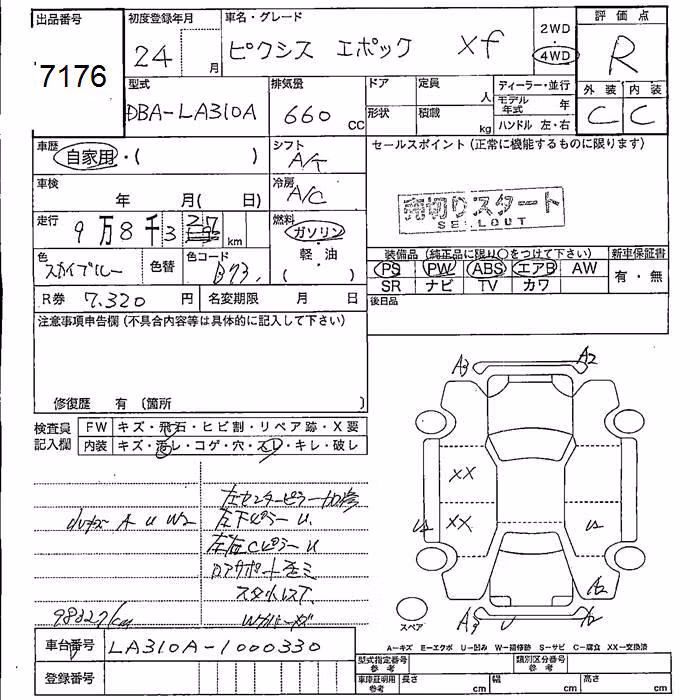 出品番号
7176
初度登録年月
24 月
車名・グレード
ピクシス エポック Xf
2WD
・
4WD
評価点
R
外装 内装
C C
型式
DBA-LA310A
排気量
660 CC
ドア
形状
定員
人
積載
kg
ディーラー・並行
モデル年式 年
ハンドル 左・右
車歴
自家用・( )
シフト
A/T
セールスポイント(正常に機能するものに限ります)
売切りスタート
SELLOUT
車検
年 月( 日)
冷房
A/C
走行
9万8千327km
燃料
ガソリン
・
軽油
( )
色
スカイブルー
色替
色コード
B73
装備品(純正品に限り○をつけて下さい)
PS PW ABS エアB AW
SR ナビ TV カワ
新車保証書
有・無
R券 7.320円
名変期限 月 日
後日品
注意事項申告欄(不具合内容等は具体的に記入して下さい)
修復歴 有〔箇所 〕
検査員
記入欄
FW キズ・飛石・ヒビ割・リペア跡・X要
内装 キズ・汚レ・コゲ・穴・スレ・キレ・破レ
左センターピラー加修
左下ピラーU
A U W2
左右CピラーU
98327km
A3 A2
XX
XX
U
A2
スペア
車台番号 LA310A-1000330
登録番号
A-キズ E-エクボ U-凹み W-補修跡 S-サビ C-腐食 XX-交換済
型式指定番号
参考
類別区分番号
参考
車庫証明用
参考
長さ cm 幅 cm 高さ cm